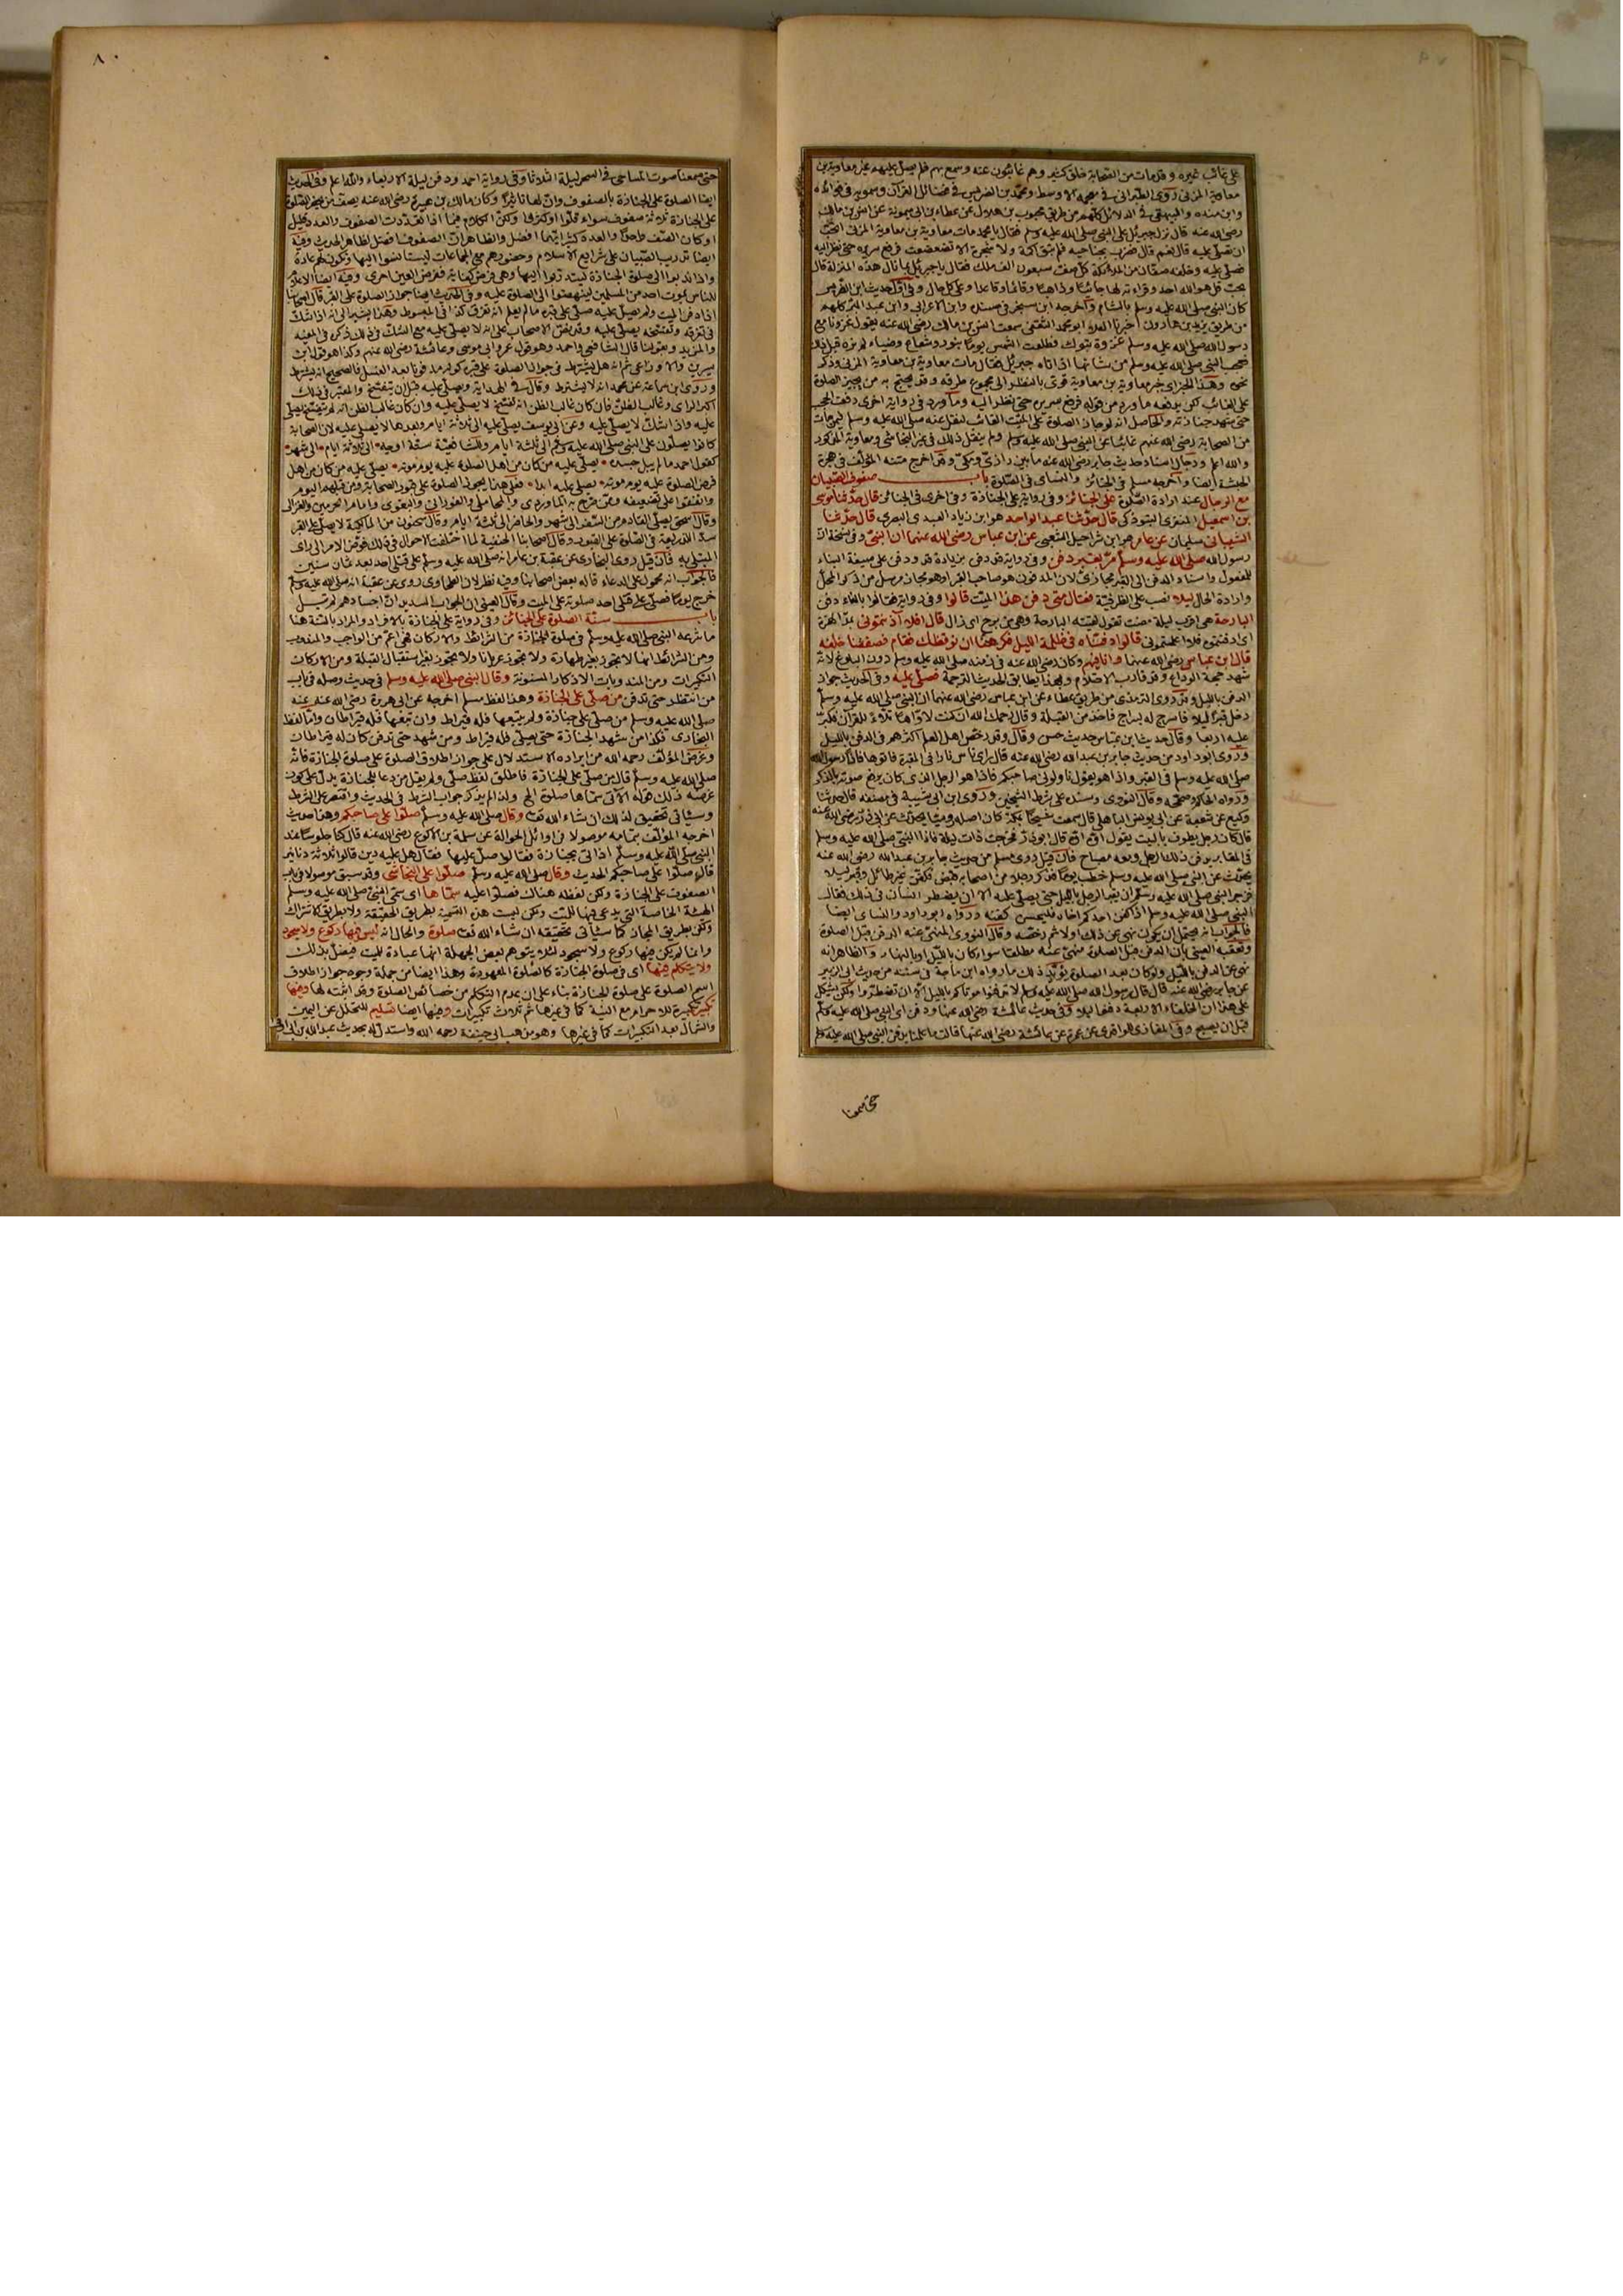 على غائب غيره وقد مات من الصحابة خلق كثير وهم غائبون عنه وسمع بهم فلم يصل عليهم غير معاوية بن
معاوية المزنى روى الطبرانى فى معجمه الاوسط ومحمد بن الضريس فى فضائل القرآن وسمويه فى فوائده
وابن منده والبيهقى فى الدلائل كلهم من طريق محبوب بن هلال عن عطاء بن ابى ميمونة عن انس بن مالك
رضى الله عنه قال نزل جبريل على النبى صلى الله عليه وسلم فقال يا محمد مات معاوية بن معاوية المزنى اتحب
ان تصلى عليه قال نعم قال فضرب بجناحيه فلم تبق اكمة ولا شجرة الا تضعضعت فرفع سريره حتى نظر اليه
فصلى عليه وخلفه صفان من الملائكة كل صف سبعون الف ملك فقال يا جبريل بما نال هذه المنزلة قال
بحب قل هو الله احد وقراءته لها جائيا وذاهبا وقائما وقاعدا وعلى كل حال وفى اول حديث ابن الضريس
كان النبى صلى الله عليه وسلم بالشام واخرجه ابن سنجر فى مسنده وابن الاعرابى وابن عبد البر كلهم
من طريق يزيد بن هارون اخبرنا العلاء ابو محمد الثقفى سمعت انس بن مالك رضى الله عنه يقول غزونا مع
رسول الله صلى الله عليه وسلم غزوة تبوك فطلعت الشمس يوما بنور وشعاع وضياء لم نره قبل ذلك
فعجب النبى صلى الله عليه وسلم من شانها اذ اتاه جبريل فقال مات معاوية بن معاوية المزنى وذكر
نحوه وهذا الخبر اى خبر معاوية بن معاوية قوى بالنظر الى مجموع طرقه وقد يحتج به من يجيز الصلوة
على الغائب لكن يدفعه ما ورد من قوله فرفع سريره حتى نظر اليه وما ورد فى رواية اخرى رفعت الحجب
حتى شهد جنازته والحاصل انه لو جاز الصلوة على الميت الغائب لنقل عنه صلى الله عليه وسلم لمن مات
من الصحابة رضى الله عنهم غائبا عن النبى صلى الله عليه وسلم ولم ينقل ذلك فى غير النجاشى ومعاوية المذكور
والله اعلم ورجال اسناد حديث جابر رضى الله عنه ما بين رازى ومكى وقد اخرج متنه المؤلف فى هجرة
الحبشة ايضا واخرجه مسلم فى الجنائز والنسائى فى الصلوة باب صفوف الصبيان
مع الرجال عند ارادة الصلوة على الجنائز وفى رواية على الجنازة وفى اخرى فى الجنائز قال حدثنا موسى
بن اسمعيل المنقرى التبوذكى قال حدثنا عبد الواحد هو ابن زياد العبدى البصرى قال حدثنا
الشيبانى سليمان عن عامر هو ابن شراحيل الشعبى عن ابن عباس رضى الله عنهما ان النبى وفى نسخة ان
رسول الله صلى الله عليه وسلم مر بقبر دفن وفى رواية قد دفن بزيادة قد ودفن على صيغة البناء
للمفعول واسناد الدفن الى القبر مجازى لان المدفون هو صاحب القبر او هو مجاز مرسل من ذكر المحل
وارادة الحال ليلا نصب على الظرفية فقال متى دفن هذا الميت قالوا وفى رواية فقالوا بالفاء دفن
البارحة هى اقرب ليلة مضت تقول لقيته البارحة وهى من برح اى زال قال افلا آذنتمونى بمد الهمزة
اى دفنتموه فلا اعلمتمونى قالوا دفناه فى ظلمة الليل فكرهنا ان نوقظك فقام فصففنا خلفه
قال ابن عباس رضى الله عنهما وانا فيهم وكان رضى الله عنه فى زمنه صلى الله عليه وسلم دون البلوغ لانه
شهد حجة الوداع وقد قارب الاحتلام وبهذا يطابق الحديث الترجمة فصلى عليه وفى الحديث جواز
الدفن بالليل وقد روى الترمذى من طريق عطاء عن ابن عباس رضى الله عنهما ان النبى صلى الله عليه وسلم
دخل قبرا ليلا فاسرج له بسراج فاخذ من القبلة وقال رحمك الله ان كنت لاواها تلاء للقرآن فكبر
عليه اربعا وقال حديث ابن عباس حديث حسن وقال وقد رخص اهل العلم اكثرهم فى الدفن بالليل
وروى ابو داود من حديث جابر بن عبد الله رضى الله عنه قال راى ناس نارا فى المقبرة فاتوها فاذا رسول الله
صلى الله عليه وسلم فى القبر واذا هو يقول ناولونى صاحبكم فاذا هو الرجل الذى كان يرفع صوته بالذكر
ورواه الحاكم وصححه وقال النووى وسنده على شرط الشيخين وروى ابن ابى شيبة فى مصنفه قال حدثنا
وكيع عن شعبة عن ابى يونس الباهلى قال سمعت شيخا بمكة كان اصله روميا يحدث عن ابى ذر رضى الله عنه
قال كان رجل يطوف بالبيت يقول اوه اوه قال ابو ذر فخرجت ذات ليلة فاذا النبى صلى الله عليه وسلم
فى المقابر يدفن ذلك الرجل ومعه مصباح فان قيل روى مسلم من حديث جابر بن عبد الله رضى الله عنه
يحدث عن النبى صلى الله عليه وسلم خطب يوما فذكر رجلا من اصحابه قبض فكفن غير طائل وقبر ليلا
فزجر النبى صلى الله عليه وسلم ان يقبر الرجل بالليل حتى يصلى عليه الا ان يضطر انسان الى ذلك فقال
النبى صلى الله عليه وسلم اذا كفن احدكم اخاه فليحسن كفنه ورواه ابو داود والنسائى ايضا
فالجواب انه يحتمل ان يكون نهى عن ذلك اولا ثم رخصه وقال النووى المنهى عنه الدفن قبل الصلوة
وتعقبه العينى بان الدفن قبل الصلوة منهى عنه مطلقا سواء كان بالليل او بالنهار والظاهر انه
نهى عن الدفن بالليل ولو كان بعد الصلوة يؤيد ذلك ما رواه ابن ماجة فى سننه من حديث ابى الزبير
عن جابر رضى الله عنه قال قال رسول الله صلى الله عليه وسلم لا تدفنوا موتاكم بالليل الا ان تضطروا ولكن يشكل
على هذا ان الخلفاء الاربعة دفنوا ليلا وفى حديث عائشة رضى الله عنها ودفن اى النبى صلى الله عليه وسلم
قبل ان يصبح وفى المغازى للواقدى عن عمرة عن عائشة رضى الله عنها قالت ما علمنا بدفن النبى صلى الله عليه وسلم
حتى سمعنا
٨٠
حتى سمعنا صوت المساحى فى السحر ليلة الثلاثا وفى رواية احمد ودفن ليلة الاربعاء والله اعلم وفى الحديث
ايضا الصلوة على الجنازة بالصفوف وان لها تاثيرا وكان مالك بن هبيرة رضى الله عنه يصف من يحضر الصلوة
على الجنازة ثلاثة صفوف سواء قلوا او كثروا ولكن الكلام فيما اذا تعددت الصفوف والعدد قليل
او كان الصف واحدا والعدد كثير ايهما افضل والظاهر ان الصفوف افضل لظاهر الحديث وفيه
ايضا تدريب الصبيان على شرايع الاسلام وحضورهم مع الجماعات ليستانسوا اليها وتكون لهم عادة
واذا ندبوا الى صلوة الجنازة ليتدربوا اليها وهى فرض كفاية ففرض العين احرى وفيه ايضا الاعلام
للناس بموت احد من المسلمين لينهضوا الى الصلوة عليه وفى الحديث ايضا جواز الصلوة على القبر قال اصحابنا
اذا دفن الميت ولم يصل عليه صلى على قبره ما لم يعلم انه تفرق كذا فى المبسوط وهذا يشير الى انه اذا شك
فى تفرقه وتفسخه يصلى عليه وقد نص الاصحاب على انه لا يصلى عليه مع الشك فى ذلك ذكره فى المفيد
والمزيد وبقولنا قال الشافعى واحمد وهو قول عمر وابى موسى وعائشة رضى الله عنهم وكذا هو قول ابن
سيرين والاوزاعى ثم انه هل يشترط فى جواز الصلوة على قبره كونه مدفونا بعد الغسل فالصحيح انه يشترط
وروى ابن سماعة عن محمد انه لا يشترط وقال فى الهداية ويصلى عليه قبل ان يتفسخ والمعتبر فى ذلك
اكبر الراى وغالب الظن فان كان غالب الظن انه تفسخ لا يصلى عليه وان كان غالب الظن انه لم يتفسخ يصلى
عليه واذا شك لا يصلى عليه وعن ابى يوسف يصلى عليه الى ثلاثة ايام وبعدها لا يصلى عليه لان الصحابة
كانوا يصلون على النبى صلى الله عليه وسلم الى ثلثة ايام وللشافعية ستة اوجه الى ثلاثة ايام الى شهر
كقول احمد ما لم يبل جسده يصلى عليه من كان من اهل الصلوة عليه يوم موته يصلى عليه من كان من اهل
فرض الصلوة عليه يوم موته يصلى عليه ابدا فعلى هذا يجوز الصلوة على قبور الصحابة ومن قبلهم اليوم
واتفقوا على تضعيفه وممن صرح به الماوردى والمحاملى والفورانى والبغوى وامام الحرمين والغزالى
وقال اسحق يصلى القادم من السفر الى شهر والحاضر الى ثلاثة ايام وقال سحنون من المالكية لا يصلى على القبر
سدا للذريعة فى الصلوة على القبور وقال اصحابنا الحنفية لما اختلفت الاحوال فى ذلك فوض الامر الى راى
المبتلى به فان قيل روى البخارى عن عقبة بن عامر انه صلى الله عليه وسلم صلى على قتلى احد بعد ثمان سنين
فالجواب انه محمول على الدعاء قاله بعض اصحابنا وفيه نظر لان الطحاوى روى عن عقبة انه صلى الله عليه وسلم
خرج يوما فصلى على قتلى احد صلوته على الميت وقال العينى ان الجواب السديد ان اجسادهم لم تبل
باب سنة الصلوة على الجنائز وفى رواية على الجنازة بالافراد والمراد بالسنة هنا
ما شرعه النبى صلى الله عليه وسلم فى صلوة الجنازة من الشرائط والاركان فهى اعم من الواجب والمندوب
ومن الشرائط انها لا تجوز بغير طهارة ولا تجوز عريانا ولا تجوز بغير استقبال القبلة ومن الاركان
التكبيرات ومن المندوبات الاذكار المسنونة وقال النبى صلى الله عليه وسلم فى حديث وصله فى باب
من انتظر حتى تدفن من صلى على الجنازة وهذا لفظ مسلم اخرجه عن ابى هريرة رضى الله عنه عنه
صلى الله عليه وسلم من صلى على جنازة ولم يتبعها فله قيراط وان تبعها فله قيراطان واما لفظ
البخارى فكذا من شهد الجنازة حتى يصلى فله قيراط ومن شهد حتى تدفن كان له قيراطان
وغرض المؤلف رحمه الله من ايراده الاستدلال على جواز اطلاق الصلوة على صلوة الجنازة فانه
صلى الله عليه وسلم قال من صلى على الجنازة فاطلق لفظ صلى ولم يقل من دعا للجنازة يدل على كون
غرضه ذلك قوله الآتى سماها صلوة الخ ولذا لم يذكر جواب الشرط فى الحديث واقتصر على الشرط
وسياتى تحقيق لذلك ان شاء الله تعالى وقال صلى الله عليه وسلم صلوا على صاحبكم وهذا حديث
اخرجه المؤلف بتمامه موصولا فى اوائل الحوالة عن سلمة بن الاكوع رضى الله عنه قال كنا جلوسا عند
النبى صلى الله عليه وسلم اذ اتى بجنازة فقالوا صل عليها فقال هل عليه دين قالوا ثلاثة دنانير
قال صلوا على صاحبكم الحديث وقال صلى الله عليه وسلم صلوا على النجاشى وقد سبق موصولا فى باب
الصفوف على الجنازة ولكن لفظه هناك فصلوا عليه سماها اى سمى النبى صلى الله عليه وسلم
الهيئة الخاصة التى يدعى فيها للميت ولكن ليست هذه التسمية بطريق الحقيقة ولا بطريق الاشتراك
ولكن بطريق المجاز كما سياتى تحقيقه ان شاء الله تعالى صلوة والحال انه ليس فيها ركوع ولا سجود
وانما لم يكن فيها ركوع ولا سجود لئلا يتوهم بعض الجهلة انها عبادة للميت فيضل بذلك
ولا يتكلم فيها اى فى صلوة الجنازة كالصلوة المعهودة وهذا ايضا من جملة وجوه جواز اطلاق
اسم الصلوة على صلوة الجنازة بناء على ان عدم التكلم من خصائص الصلوة وقد اثبته لها وفيها
تكبير تكبيرة للاحرام مع النية كما فى غيرها ثم ثلاث تكبيرات وفيها ايضا تسليم للتحلل عن اليمين
والشمال بعد التكبيرات كما فى غيرها وهو مذهب ابى حنيفة رحمه الله واستدل له بحديث عبد الله بن ابى اوفى